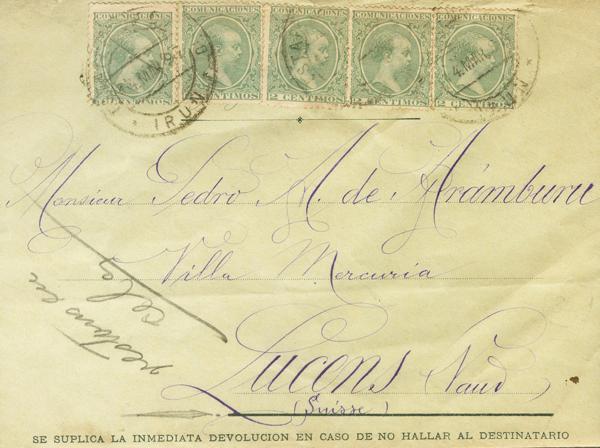 COMUNICACIONES COMUNICACIONES COMUNICACIONES COMUNICACIONES COMUNICACIONES
2 CENTIMOS 2 CENTIMOS
IRUN
Monsieur Pedro M. de Arámburu
Villa Mercuria
Lucens Vaud
(Suisse)
SE SUPLICA LA INMEDIATA DEVOLUCION EN CASO DE NO HALLAR AL DESTINATARIO